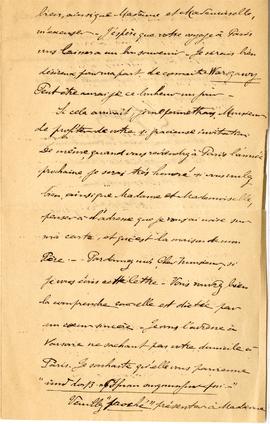 bien, ainsi que Madame et Mademoiselle,
m'excuser. J'espère que votre voyage à Paris
vous laissera un bon souvenir. Je serais bien
désireux pour ma part de connaître Warszawy
Peut être aurai-je ce bonheur un jour
Si cela arrivait je me permettrai Monsieur
de profiter de votre si gracieuse invitation
De même quand vous reviendrez à Paris l'année
prochaine je serai très honoré si vous voulez
bien, ainsi que Madame et Mademoiselle,
penser à l'adresse que je vous ai mise sur
ma carte, et qui est la maison de mon
Père. Pardonnez moi Cher Monsieur si
je vous écris cette lettre. Vous voudrez bien
la comprendre car elle est dictée par
un cœur sincère. Je vous l'adresse à
Varsovie ne sachant pas votre domicile à
Paris. Je souhaite qu'elle vous parvienne
Veuillez présenter à Madame